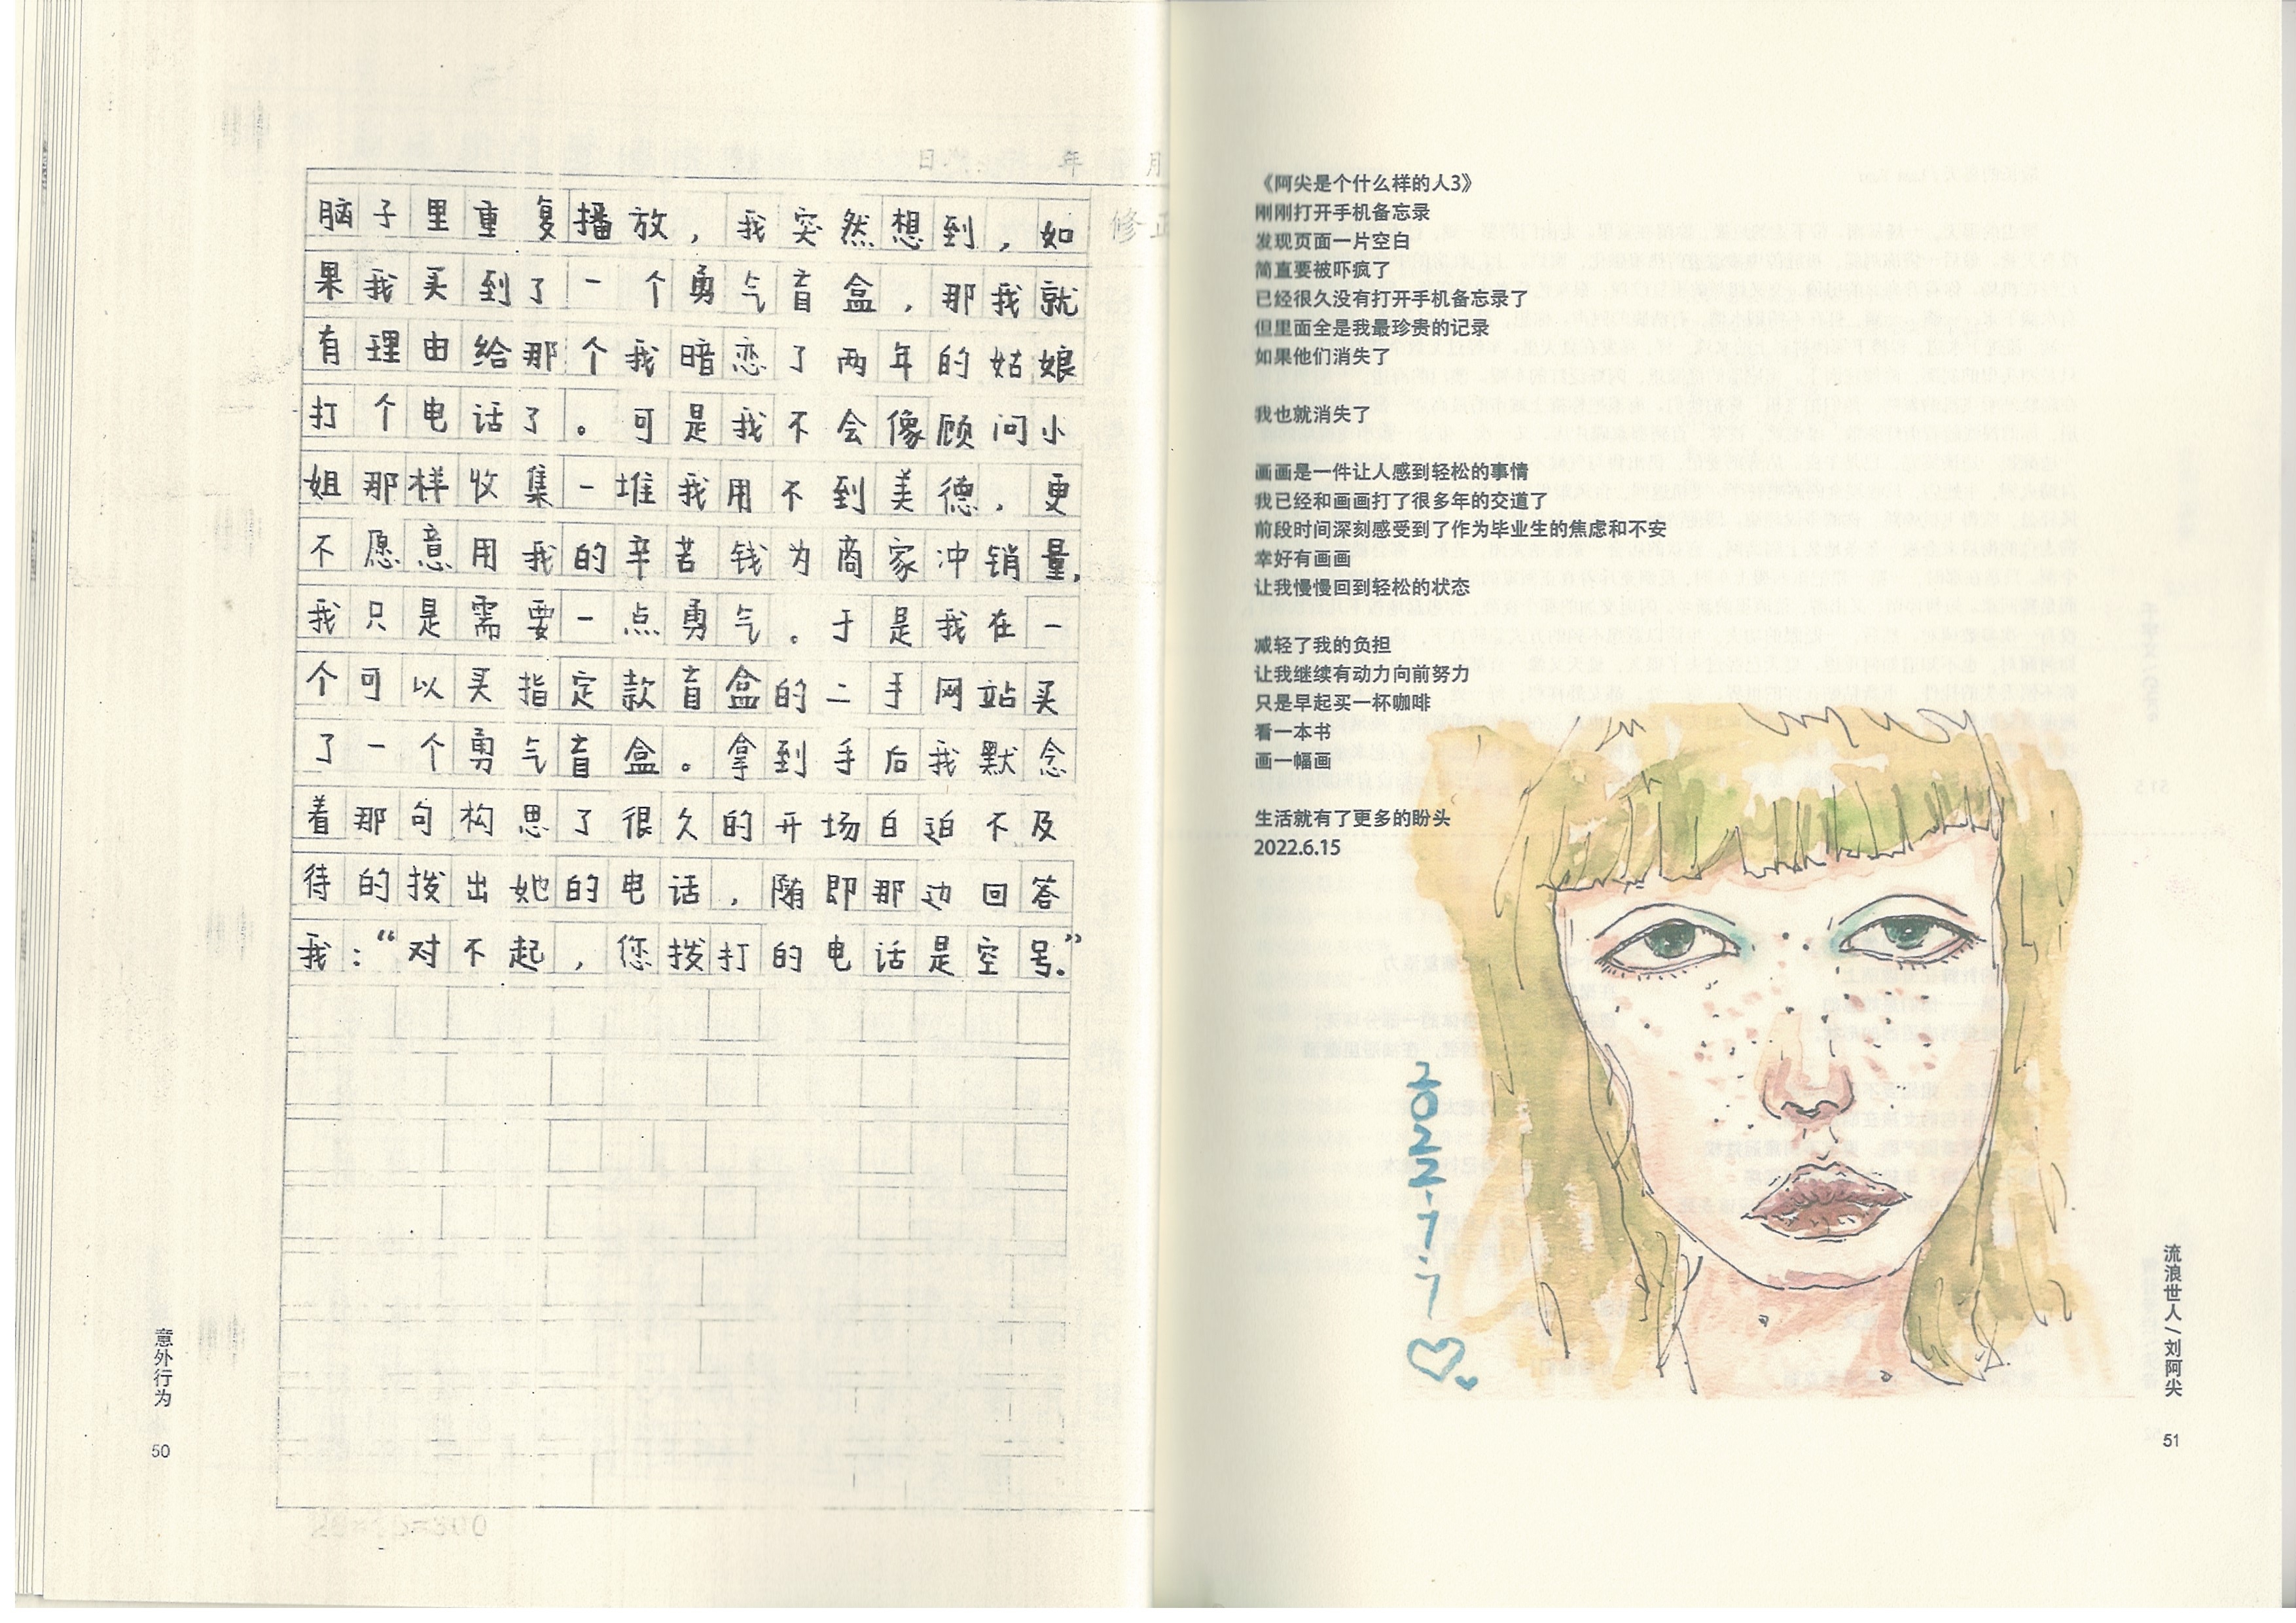 脑子里重复播放，我突然想到，如
果我买到了一个勇气盲盒，那我就
有理由给那个我暗恋了两年的姑娘
打个电话了。可是我不会像顾问小
姐那样收集一堆我用不到美德，更
不愿意用我的辛苦钱为商家冲销量，
我只是需要一点勇气。于是我在一
个可以买指定款盲盒的二手网站买
了一个勇气盲盒。拿到手后我默念
着那句构思了很久的开场白迫不及
待的拨出她的电话，随即那边回答
我：“对不起，您拨打的电话是空号。”
意外行为
50
《阿尖是个什么样的人3》
刚刚打开手机备忘录
发现页面一片空白
简直要被吓疯了
已经很久没有打开手机备忘录了
但里面全是我最珍贵的记录
如果他们消失了
我也就消失了
画画是一件让人感到轻松的事情
我已经和画画打了很多年的交道了
前段时间深刻感受到了作为毕业生的焦虑和不安
幸好有画画
让我慢慢回到轻松的状态
减轻了我的负担
让我继续有动力向前努力
只是早起买一杯咖啡
看一本书
画一幅画
生活就有了更多的盼头
2022.6.15
2022.7.7
流浪世人/刘阿尖
51